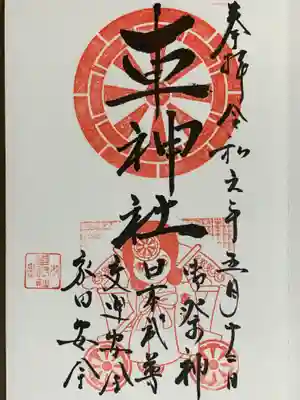 奉拝 令和六年五月十二日
車神社
御祭神
日本武尊
交通安全
家内安全